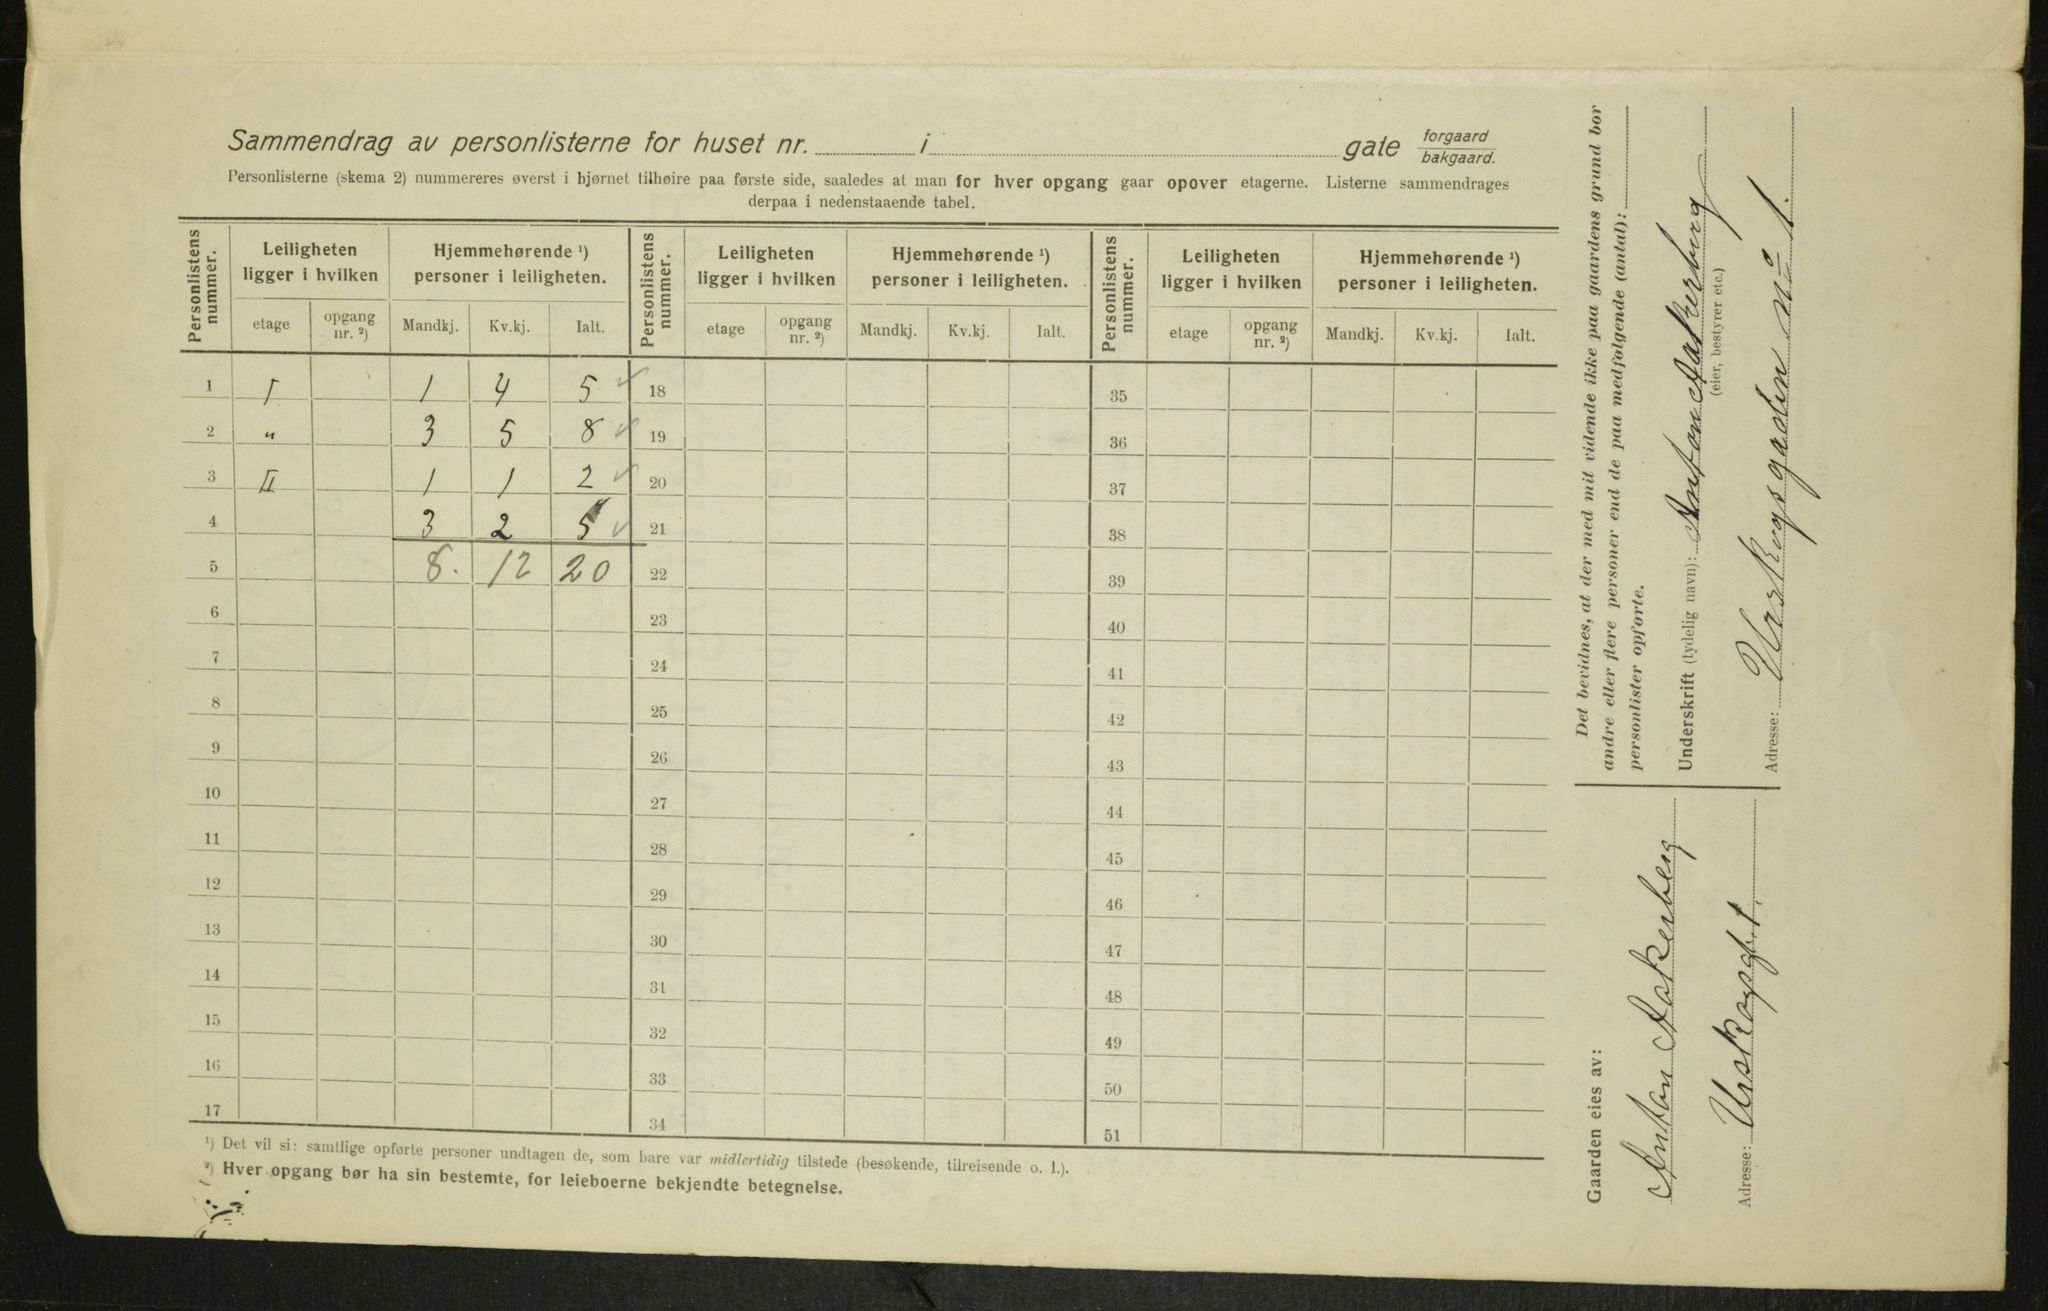 Sammendrag av personlisterne for huset nr. i gate forgaard bakgaard.
Personlisterne (skema 2) nummereres øverst i hjørnet tilhøire paa første side, saaledes at man for hver opgang gaar opover etagerne. Listerne sammendrages
derpaa i nedenstaaende tabel.
Personlistens nummer. Leiligheten ligger i hvilken Hjemmehørende ¹) personer i leiligheten. Personlistens nummer. Leiligheten ligger i hvilken Hjemmehørende ¹) personer i leiligheten. Personlistens nummer. Leiligheten ligger i hvilken Hjemmehørende ¹) personer i leiligheten.
etage opgang nr. ²) Mandkj. Kv.kj. Ialt. etage opgang nr. ²) Mandkj. Kv.kj. Ialt. etage opgang nr. ²) Mandkj. Kv.kj. Ialt.
1 I 1 4 5 ✓ 18 35
2 „ 3 5 8 ✓ 19 36
3 II 1 1 2 ✓ 20 37
4 3 2 5 ✓ 21 38
5 8. 12 20 22 39
6 23 40
7 24 41
8 25 42
9 26 43
10 27 44
11 28 45
12 29 46
13 30 47
14 31 48
15 32 49
16 33 50
17 34 51
¹) Det vil si: samtlige opførte personer undtagen de, som bare var midlertidig tilstede (besøkende, tilreisende o. l.).
²) Hver opgang bør ha sin bestemte, for leieboerne bekjendte betegnelse.
Gaarden eies av:
Anton Askerberg
Adresse: Urskogsgt. 1.
Det bevidnes, at der med mit vidende ikke paa gaardens grund bor
andre eller flere personer end de paa medfølgende (antal):
personlister opførte.
Underskrift (tydelig navn): Anton Askerberg
(eier, bestyrer etc.)
Adresse: Urskogsgaden nº 1.